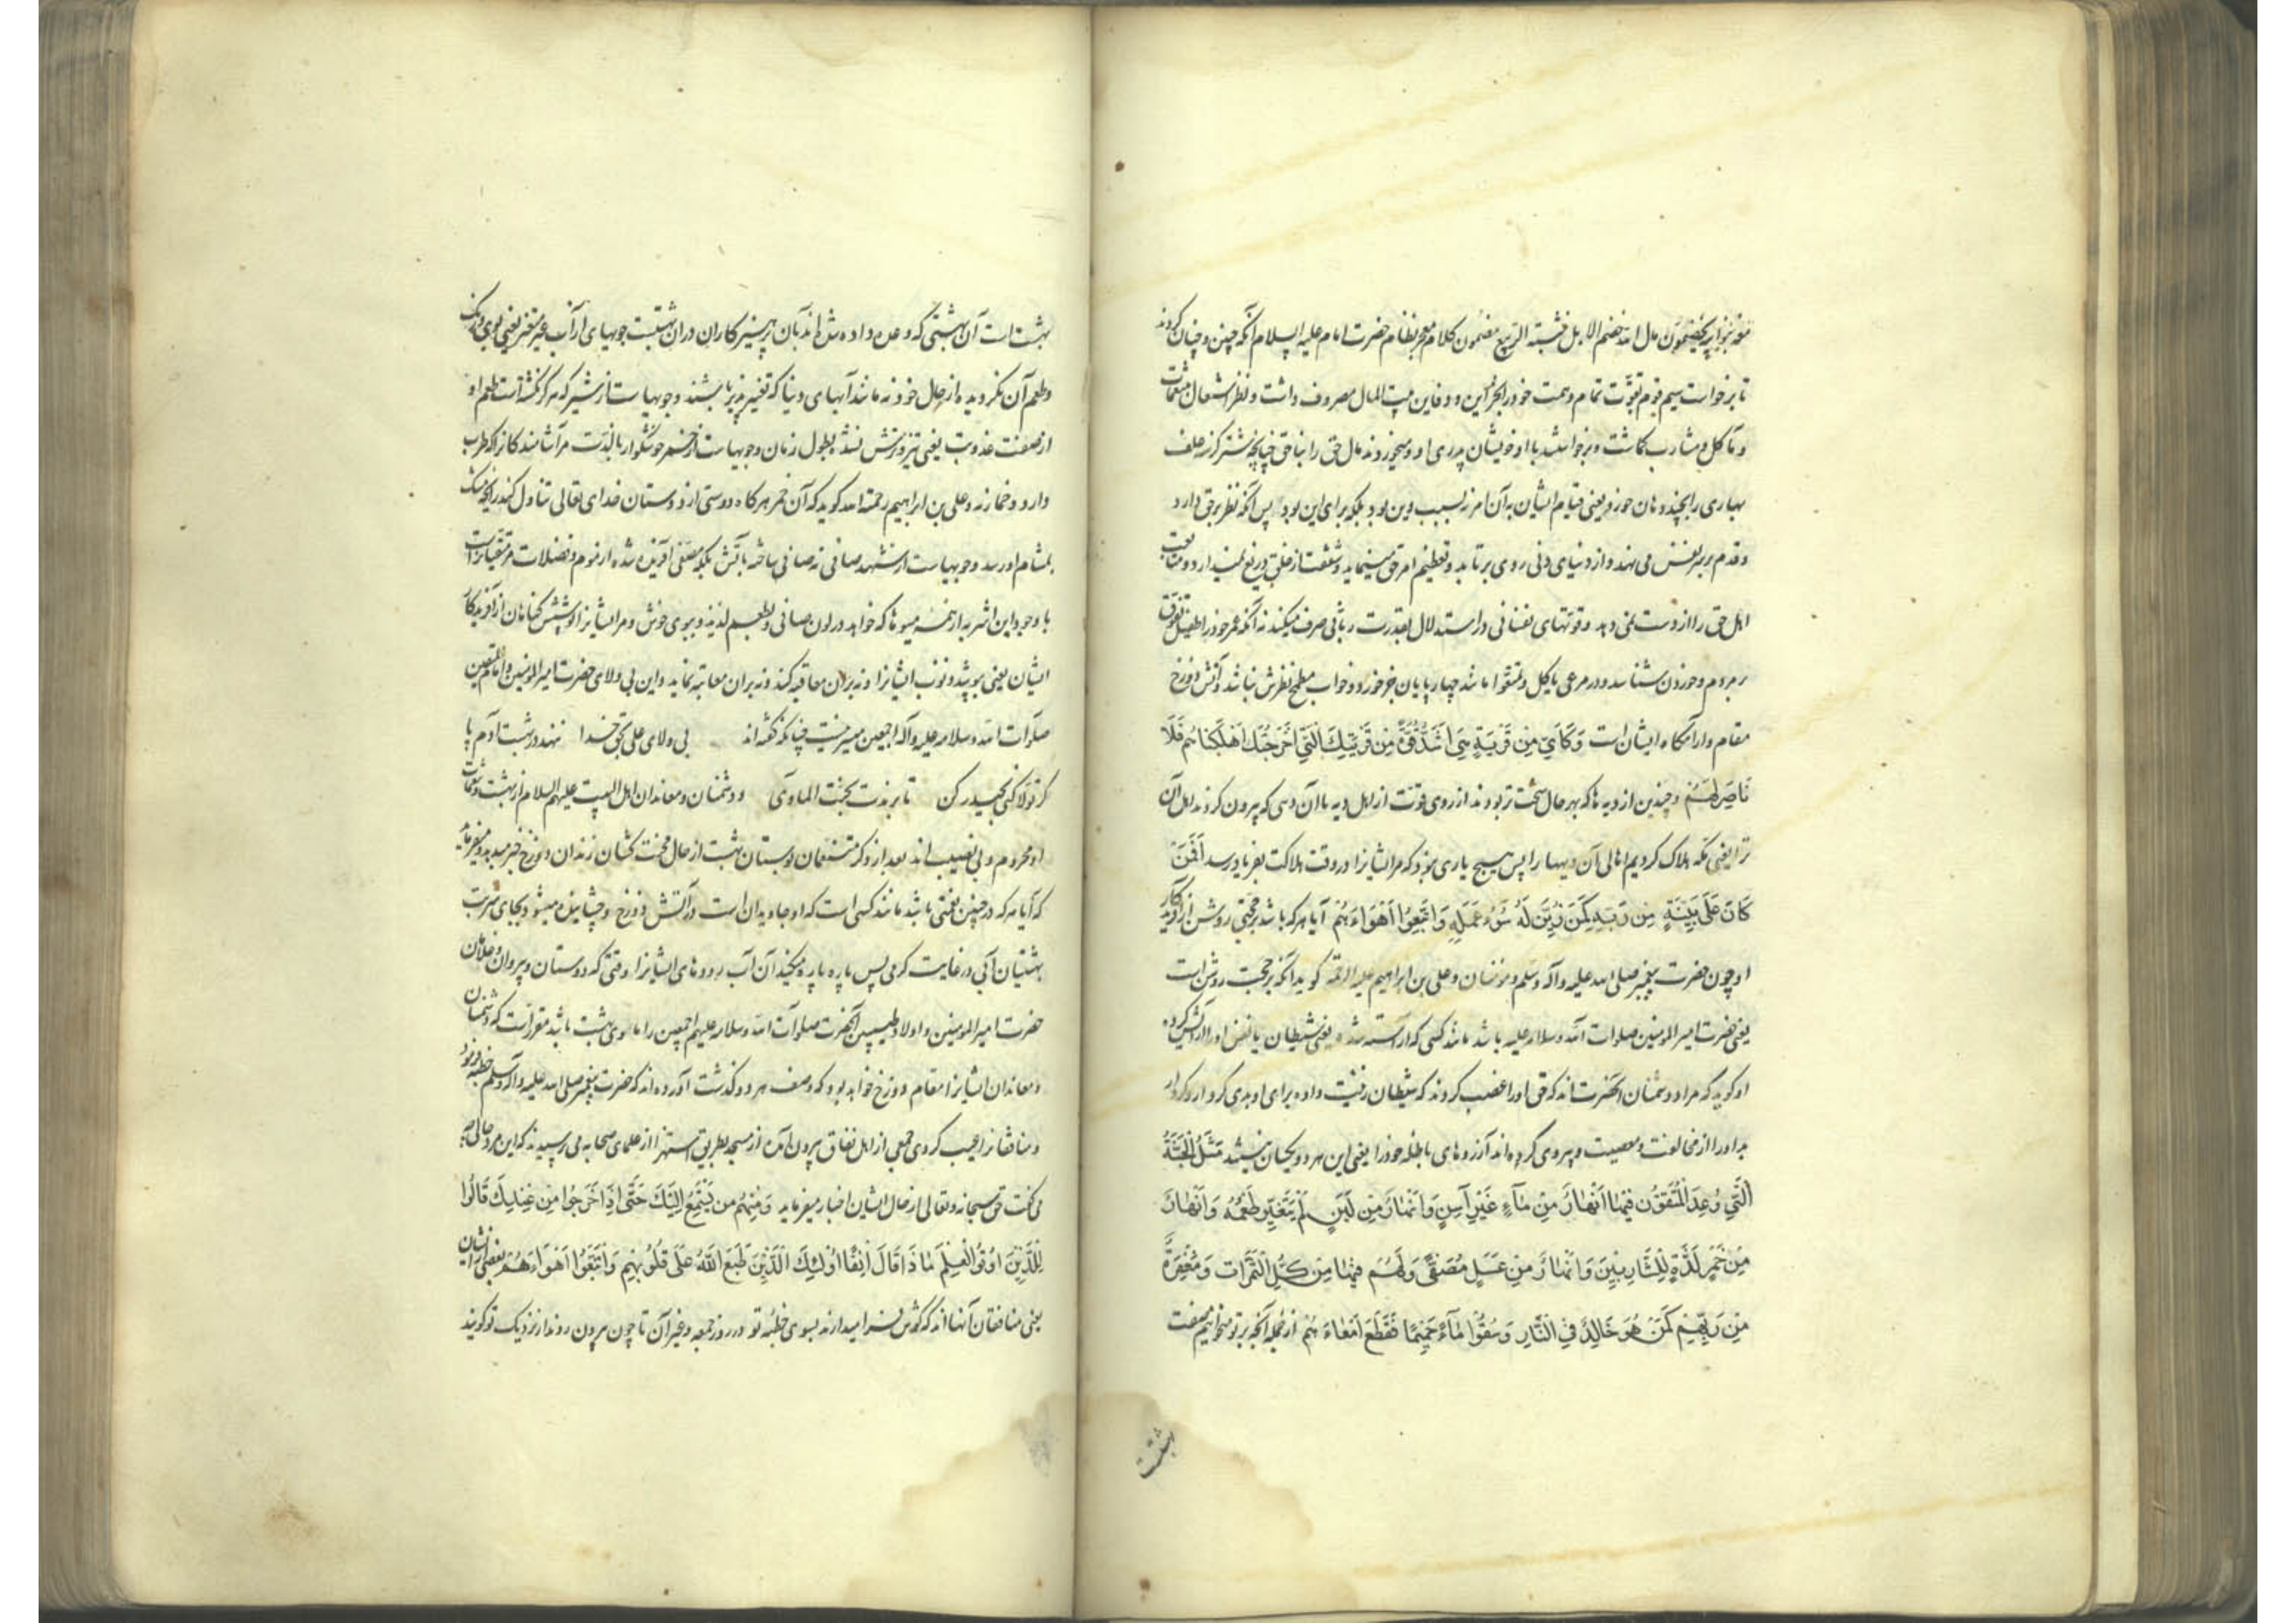 معه بنو ابیه یخضمون مال الله خضم الابل نبتة الربیع مضمون کلام معجز نظام حضرت امام علیه السلام آنکه چنین و چنان کردند
تا برخواست سیم قوم بقوت تمام و همت خود را بخزاین و دفاین بیت المال مصروف داشت و نظر اشتغال
و مآکل و مشارب کماشت و برخواستند با او خویشان پدری او و میخوردند مال حق را بناحق چنانچه شتر کرسنه علف
بهاری را بچند دهان خورد یعنی قیام ایشان به آن امر نه بسبب دین بود بلکه برای این بود پس آنکه نظر بر حق دارد
و قدم بر سر نفس می نهد و از دنیای دنی روی بر تابد و تعظیم امر حق مینماید و شفقت از خلق دریغ نمیدارد و متابعت
اهل حق را از دست نمی دهد و قوتهای نفسانی در استدلال بقدرت ربانی صرف میکند نه آنکه عمر خود را طفیل
مردم و خوردن شناسد و در مرعی یاکل و یتمتعوا مانند چهارپایان جز خورد و خواب مطمح نظرش نباشد و آتش دوزخ
مقام و آرامکاه ایشان است وَكَاَيِّ مِن قَرْيَةٍ هِيَ اَشَدُّ قُوَّةً مِن قَرْيَتِكَ الَّتِي اَخْرَجَتْكَ اَهْلَكْنَاهُم فَلَا
نَاصِرَ لَهُمْ و چندین از دیه ها که بهر حال سخت تر بودند از روی قوت از اهل دیه با آن دهی که بیرون کردند اهل آن
ترا یعنی مکه هلاک کردیم اهالی آن دیهها را پس هیچ یاری نبود که مر ایشانرا در وقت هلاکت بفریاد رسد اَفَمَن
كَانَ عَلَى بَيِّنَةٍ مِن رَبِّهِ كَمَن زُيِّنَ لَهُ سُوءُ عَمَلِهِ وَاتَّبَعُوا اَهْوَاءَهُم آیا هر که باشد بر حجتی روشن از آفریدکار
او چون حضرت پیغمبر صلی الله علیه و آله و سلم و مؤمنان و علی بن ابراهیم علیه الرحمه کوید آنکه بر حجت روشن است
یعنی حضرت امیر المومنین صلوات الله و سلامه علیه باشد مانند کسی که آراسته شده یعنی شیطان یا نفس او را آرایش کرده
او کوید که مراد دشمنان آنحضرت اند که حق او را غصب کردند که شیطان زینت داده برای او بدی کردار کردار
بد او را از مخالفت و معصیت و پیروی کرده اند آرزوهای باطله خود را یعنی این هر دو یکسان نیستند مَثَلُ الْجَنَّةِ
الَّتِي وُعِدَ الْمُتَّقُونَ فِيهَا اَنْهَارٌ مِن مَاءٍ غَيْرِ آسِنٍ وَاَنْهَارٌ مِن لَبَنٍ لَمْ يَتَغَيَّر طَعْمُهُ وَاَنْهَارٌ
مِن خَمْرٍ لَذَّةٍ لِلشَّارِبِينَ وَاَنْهَارٌ مِن عَسَلٍ مُصَفًّى وَلَهُم فِيهَا مِن كُلِّ الثَّمَرَاتِ وَمَغْفِرَةٌ
مِن رَبِّهِم كَمَن هُوَ خَالِدٌ فِي النَّارِ وَسُقُوا مَاءً حَمِيمًا فَقَطَّعَ اَمْعَاءَهُم از جمله آنچه بر تو میخوانیم صفت
بهشت
بهشت است آن بهشتی که وعده داده شده اند بآن پرهیزکاران در آن بهشت جویهای از آب غیر متغیر یعنی بوی و رنک
و طعم آن نکردیده از حال خود نه مانند آبهای دنیا که تغییر پذیر باشند و جویها ست از شیر که هرکز نکشته است طعم او
از صفت عذوبت یعنی تیز و ترش نشده بطول زمان و جویها ست از خمر خوشکوار با لذت مر آشامندکانرا که طرب
دارد و خمار نه و علی بن ابراهیم رحمة الله کوید که آن خمر هرکاه دوستی از دوستان خدای تعالی تناول کند رایحه مشک
بمشام او رسد و جویها ست از شهد صافی نه صافی ساخته بآتش بلکه مصفی آفریده شده از موم و فضلات مر متقیانراست
با وجود این اشربه از همه میوها که خواهد در لون صافی و طعم لذیذ و ببوی خوش و مر ایشانرا پوشش کناهان از آفریدکار
ایشان یعنی بپوشد ذنوب ایشانرا و نه بر آن معاقبه کند و نه بر آن معاتبه نماید و این بی ولای حضرت امیر المومنین و امام المتقین
صلوات الله و سلامه علیه و آله اجمعین میسر نیست چنانکه کفته اند بی ولای علی بحق خدا ننهد در بهشت آدم پا
کر تولا کنی بحیدر کن تا برندت بجنت الماوی و دشمنان و معاندان اهل البیت علیهم السلام از بهشت و
او محروم و بی نصیب اند بعد از ذکر متنعمان بوستان بهشت از حال محنت کشان زندان دوزخ خبر میدهد و میفرماید
که آیا هر که در چنین نعمتی باشد مانند کسی است که او جاویدان است در آتش دوزخ و چشانیده میشود بجای شربت
بهشتیان آبی در غایت کرمی پس پاره پاره میکند آن آب رودهای ایشانرا وقتی که دوستان و پیروان و
حضرت امیر المومنین و اولاد طیبین آنحضرت صلوات الله و سلامه علیهم اجمعین را ماوی بهشت باشد مقرر است که دشمنان
و معاندان ایشانرا مقام دوزخ خواهد بود که وصف هر دو کذشت آورده اند که حضرت پیغمبر صلی الله علیه و آله و سلم خطبه فرمود
و منافقانرا عیب کردی جمعی از اهل نفاق بیرون آمده از مسجد بطریق استهزا از علمای صحابه می پرسیدند که این مرد حالی چه
می کفت حق سبحانه و تعالی از حال ایشان اخبار میفرماید وَمِنْهُم مَن يَسْتَمِعُ اِلَيْكَ حَتَّى اِذَا خَرَجُوا مِن عِنْدِكَ قَالُوا
لِلَّذِينَ اُوتُوا الْعِلْمَ مَاذَا قَالَ آنِفًا اُولَئِكَ الَّذِينَ طَبَعَ اللَّهُ عَلَى قُلُوبِهِم وَاتَّبَعُوا اَهْوَاءَهُم بعضی از ایشان
یعنی منافقان آنهااند که کوش فرا میدارند بسوی خطبه تو در روز جمعه و غیر آن تا چون بیرون روند از نزدیک تو کویند